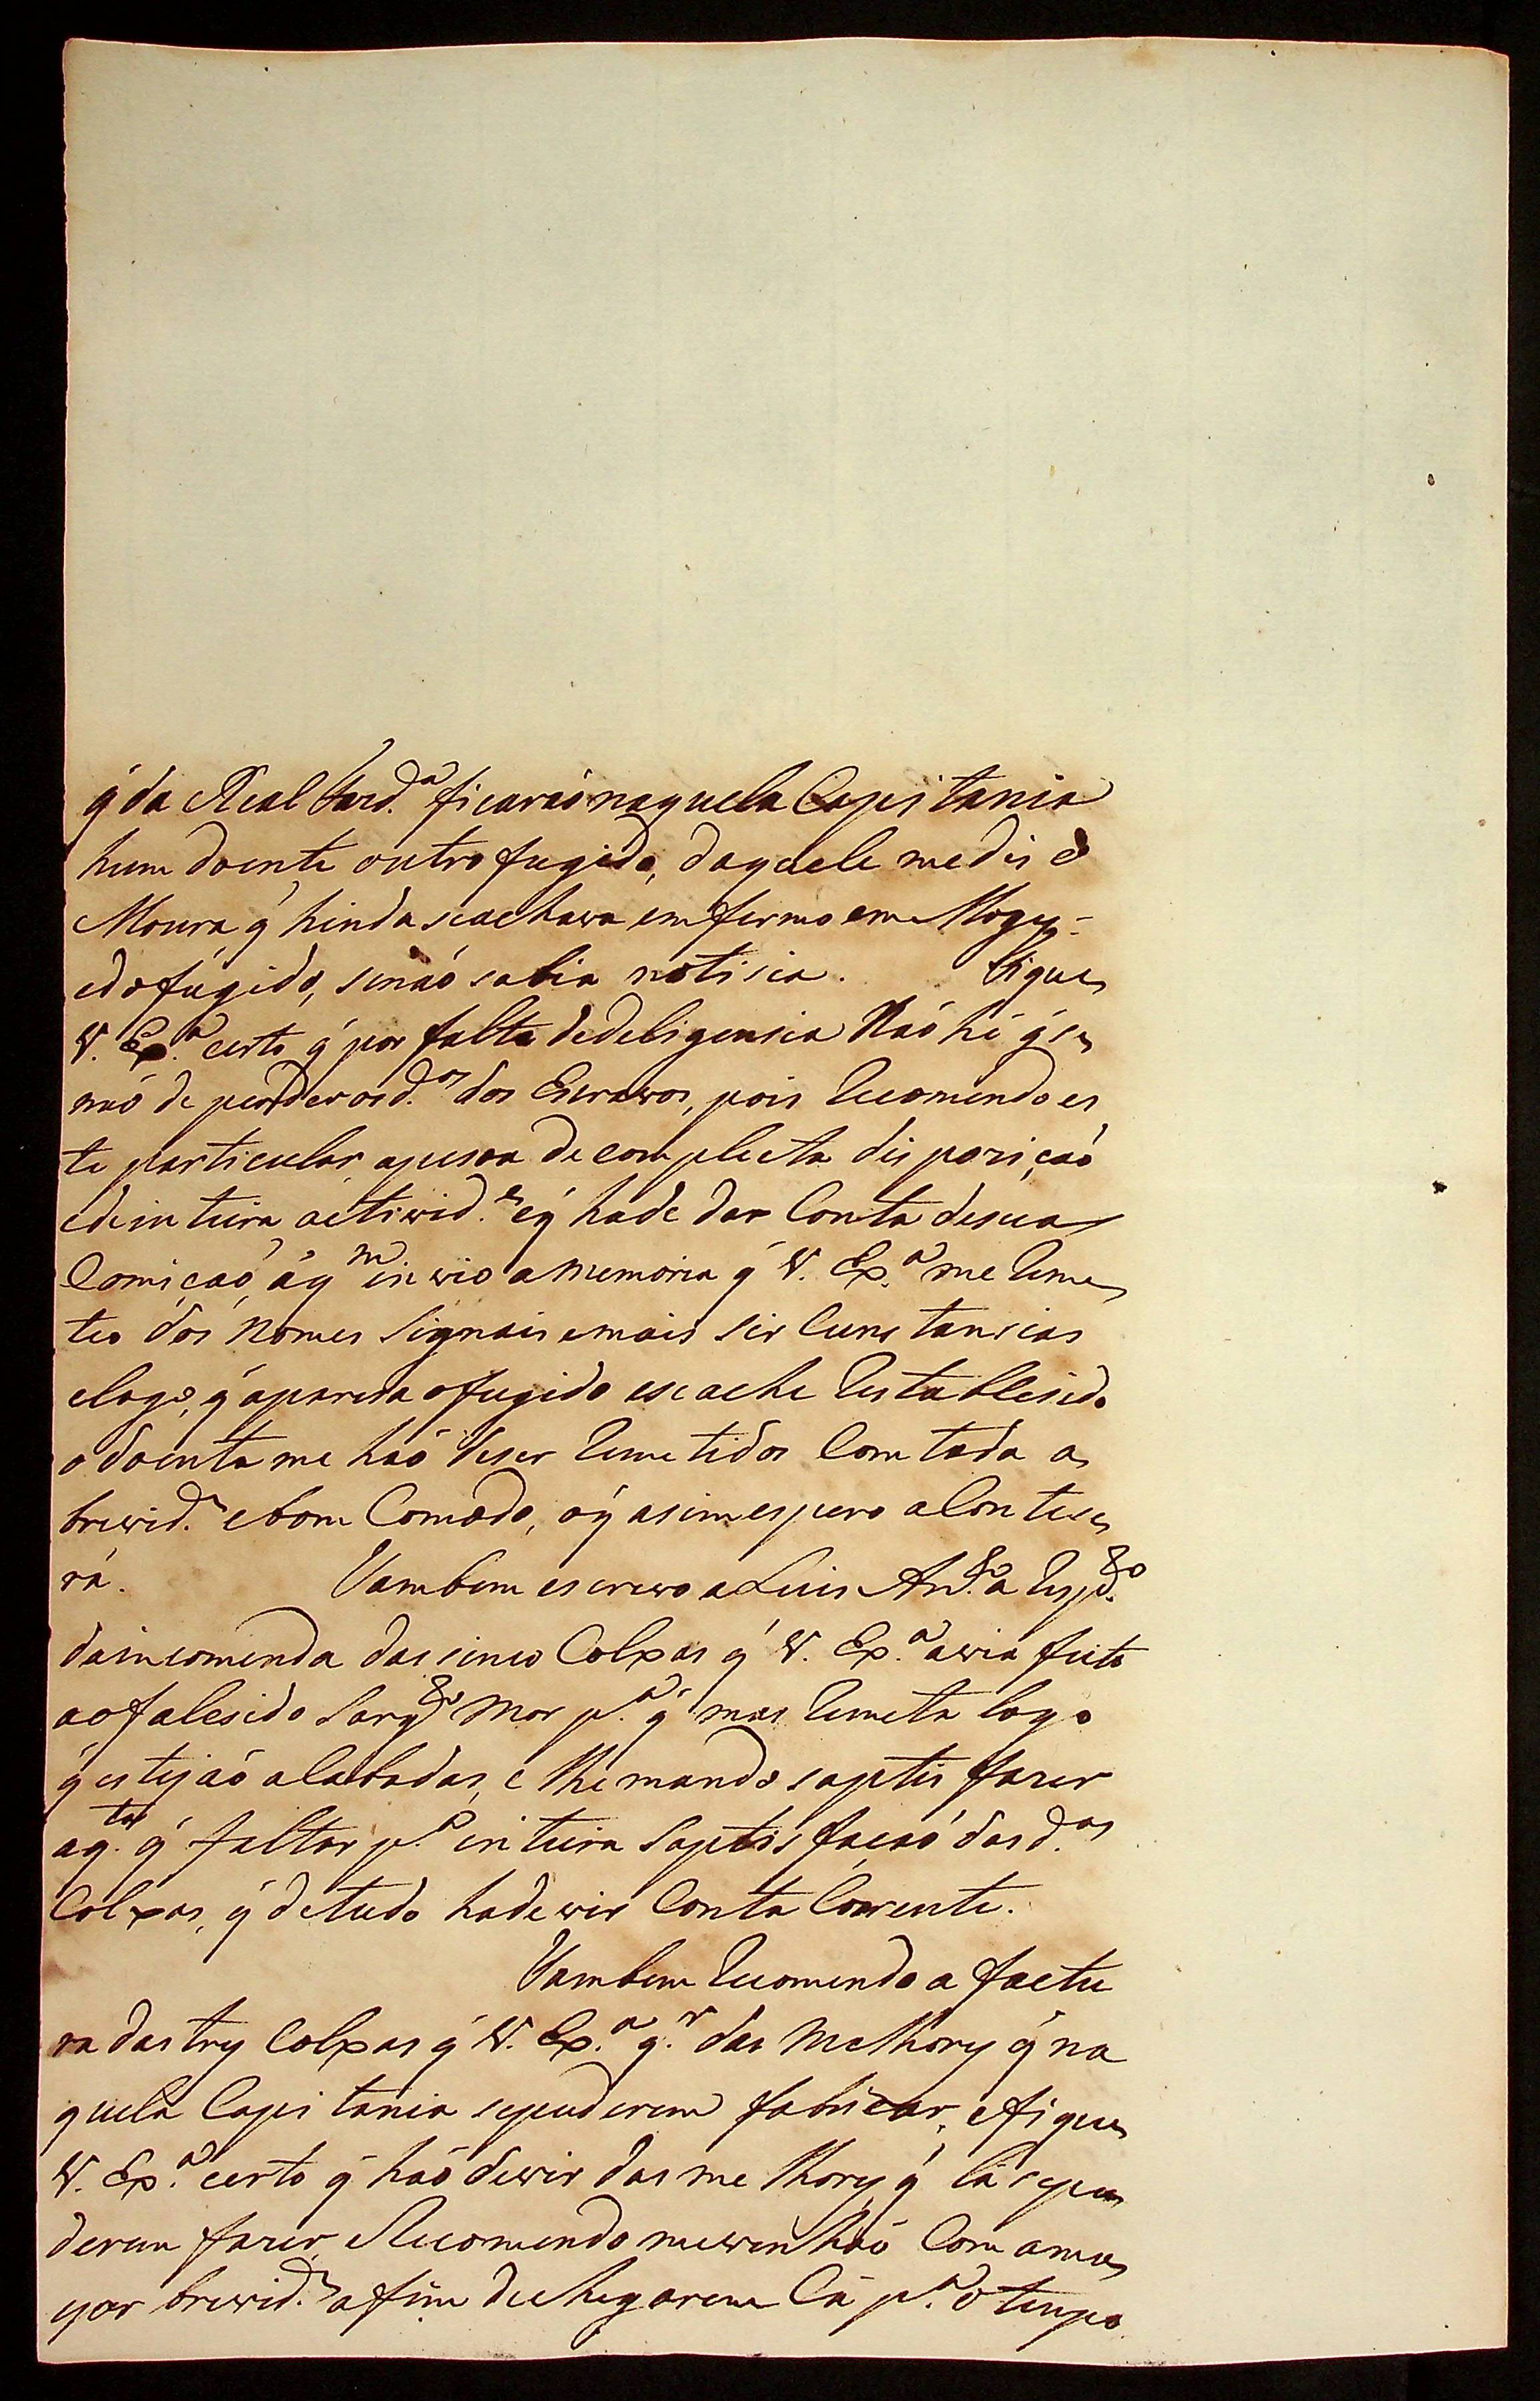 q̃ da Real Fazd.ª ficaraõ naquela Capitania
hum doente outro fugido, daquele medis o
Moura q̃ hinda seachava emfermo em Mogy-
edofugido, senaõ sabia notisia. Fique
V. Ex.ª certo q̃ por falta dedeligensia Naõ hé q̃ se
naõ de perder os d.os dos Escravos, pois Recomendo es
te particular apesoa de completa dispoziçaõ
edeinteira activid.e eq̃ hade dar Conta desua
Comiçaõ, áq.m invio amemoria q̃ V. Ex.ª me Reme
teo dos Nomes Signais emais Sircunstansias
elogo, q̃ aparesa ofugido eseache Restablesido
odoente me haõ deser Remetidos Com toda a
brevid.e ebom Comodo, oq̃ asim espero aContese
rá. Tambem escrevo aLuis An.to a Resp.to
daincomenda das sinco Colxas q̃ V. Ex.ª avia feito
aofalesido Sarg.to Mor p.ª q̃ mas Remeta logo
q̃ estejaõ acabadas, e lhemando saptis fazer
aq.ta q̃ faltar p.ª inteira Saptisfaçaõ das d.as
Colxas, q̃ detudo hadevir Conta Corrente.
Tambem Recomendo a factu
ra das trez Colxas q̃ V. Ex.ª q.r das Melhores q̃ na
quela Capitania sepuderem fabricar, efique
V. Ex.ª certo q̃ haõ devir das melhores q̃ lá sepu
derem fazer, e Recomendo mevenhaõ Com ama
yor brevid.e affim dechegarem Cá p.ª o tempo